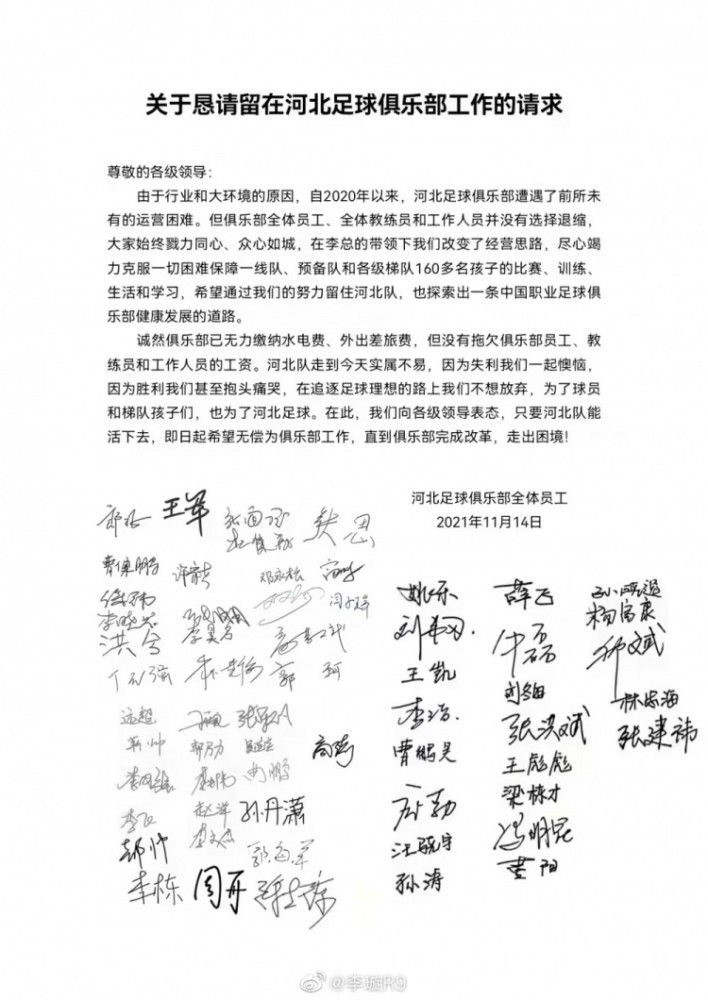 关于恳请留在河北足球俱乐部工作的请求
尊敬的各级领导：
由于行业和大环境的原因，自2020年以来，河北足球俱乐部遭遇了前所未
有的运营困难。但俱乐部全体员工、全体教练员和工作人员并没有选择退缩，
大家始终戮力同心、众心如城，在李总的带领下我们改变了经营思路，尽心竭
力克服一切困难保障一线队、预备队和各级梯队160多名孩子的比赛、训练、
生活和学习，希望通过我们的努力留住河北队，也探索出一条中国职业足球俱
乐部健康发展的道路。
诚然俱乐部已无力缴纳水电费、外出差旅费，但没有拖欠俱乐部员工、教
练员和工作人员的工资。河北队走到今天实属不易，因为失利我们一起懊恼，
因为胜利我们甚至抱头痛哭，在追逐足球理想的路上我们不想放弃，为了球员
和梯队孩子们，也为了河北足球。在此，我们向各级领导表态，只要河北队能
活下去，即日起希望无偿为俱乐部工作，直到俱乐部完成改革，走出困境！
河北足球俱乐部全体员工
2021年11月14日
王军
曹保鹏
李晓光
洪兮
郭珂
远超
孙丹潇
郭海军
李栋
周开
姚乐
王凯
李浩
曹鹏昊
孙涛
薛飞
张洪斌
王彪彪
梁栋才
冯明昆
黄阳
杨富康
林宏海
张建祎
@李璇R9